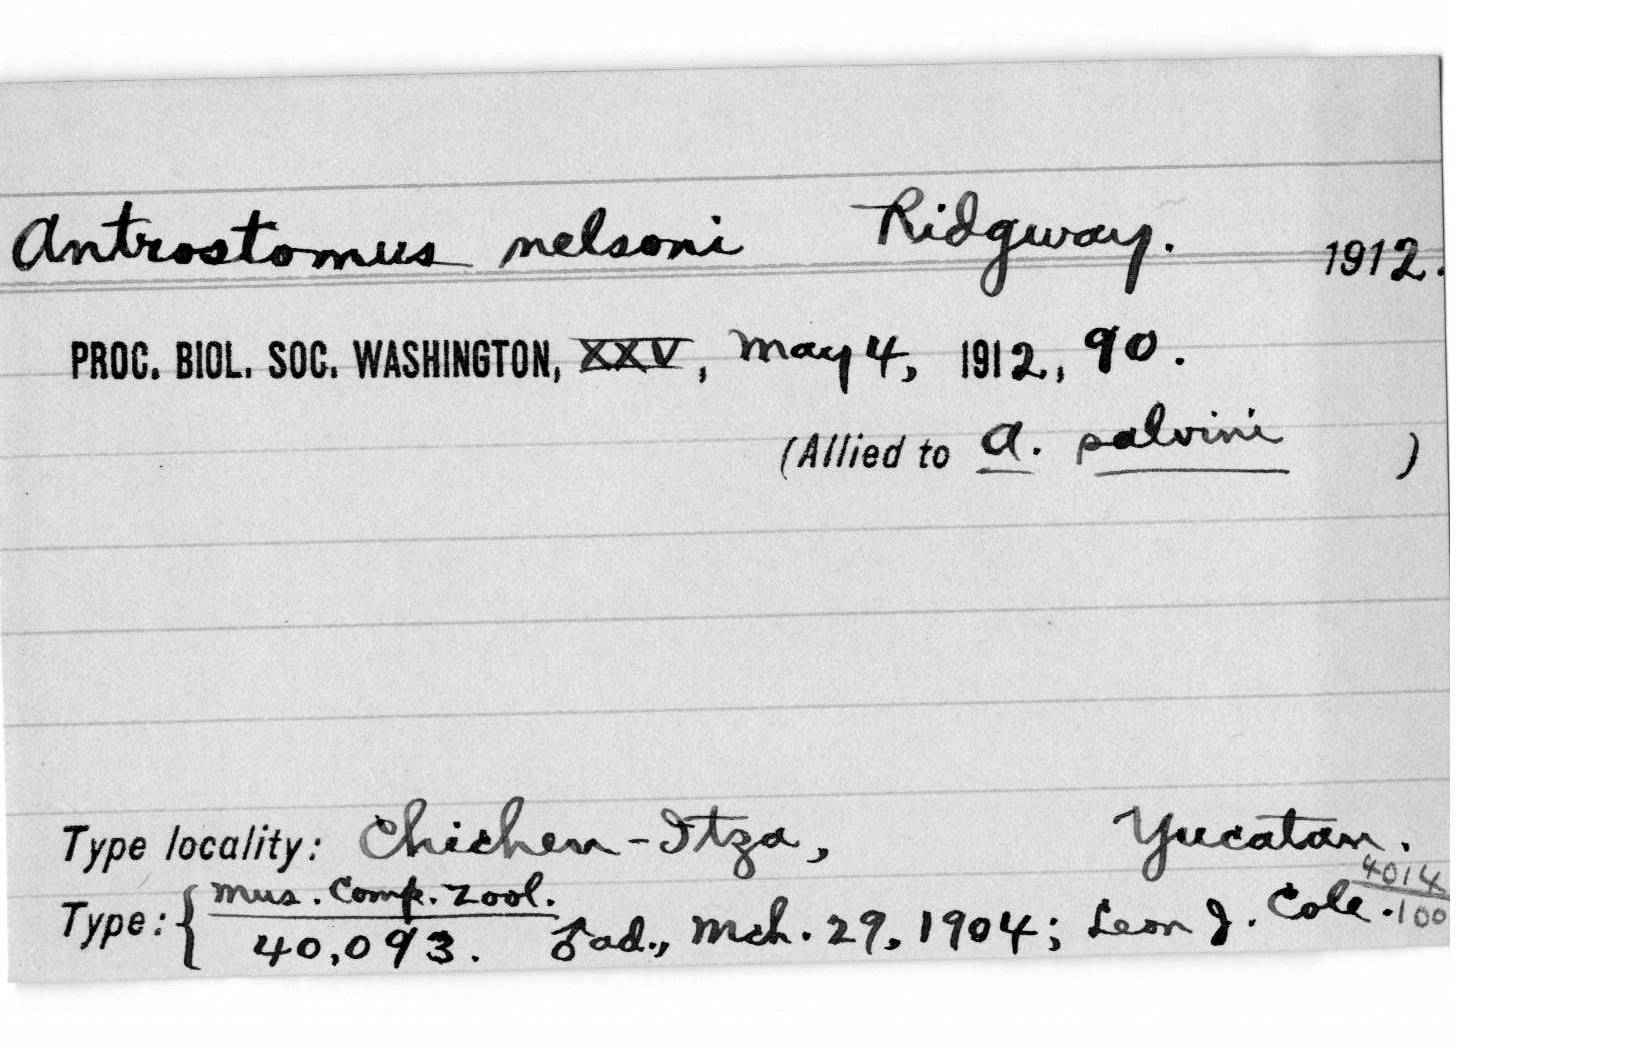 Antrostomus nelsoni Ridgway. 1912.
PROC. BIOL. SOC. WASHINGTON, XXV, May 4, 1912, 90.
(Allied to A. salvini )
Type locality: Chichen-Itza, Yucatan.
4014
Type: { Mus. Comp. Zool.
40,093. ♂ ad., Mch. 29, 1904; Leon J. Cole. 100